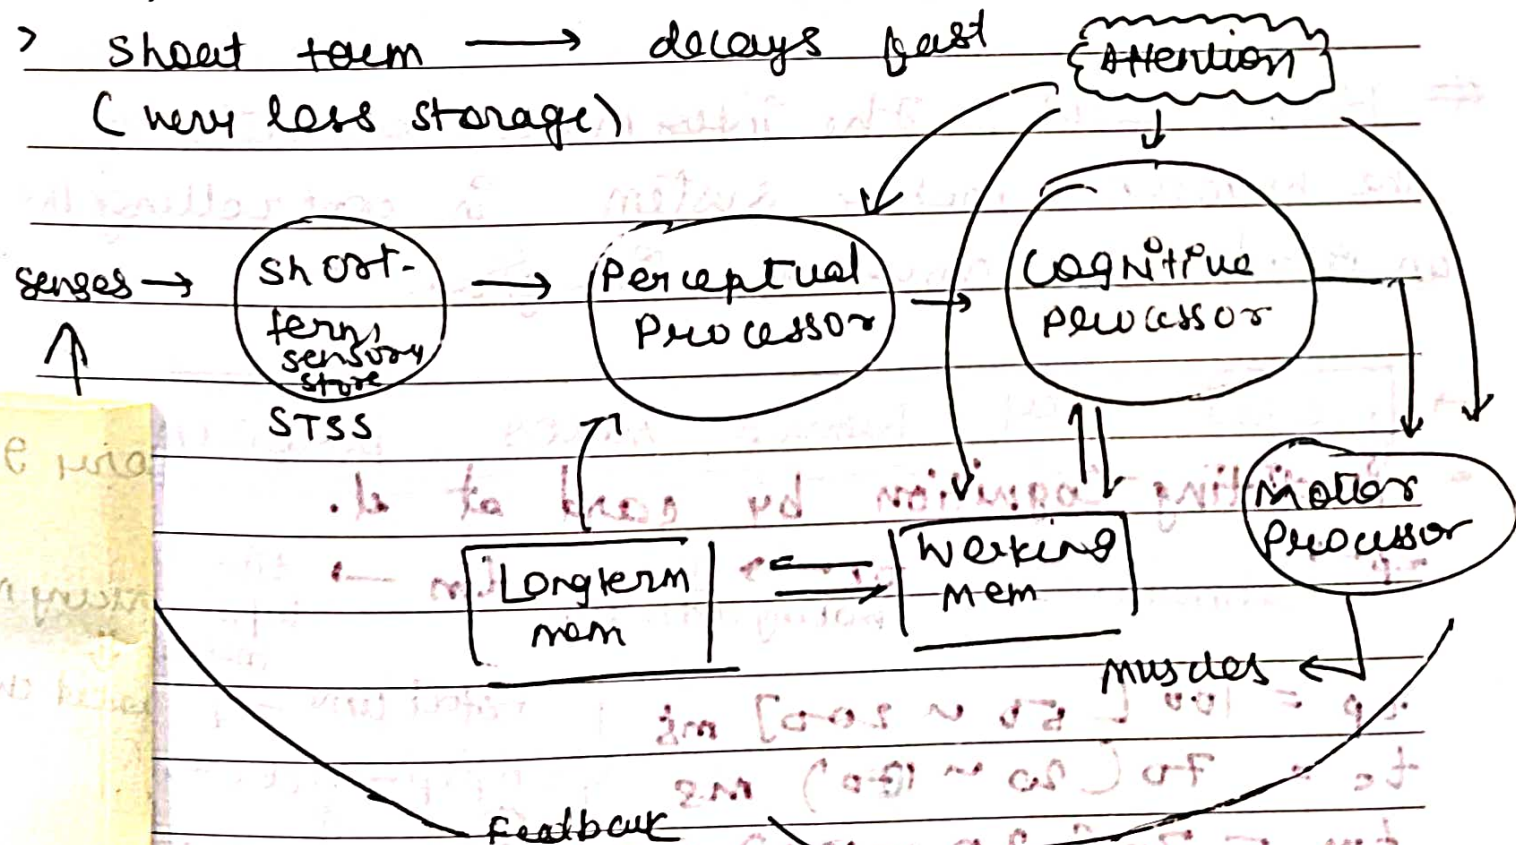 > Short term → decays fast
(very less storage)
Attention
senses →
Short-
term
sensory
store
STSS
→
Perceptual
Processor
→
Cognitive
processor
Motor
Processor
Longterm
mem
Working
mem
muscles
Feedback